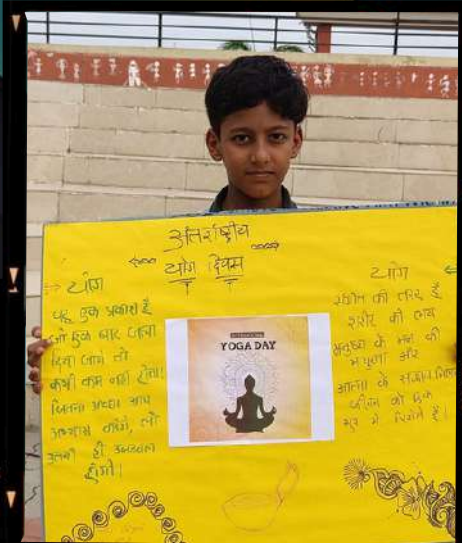 अंतर्राष्ट्रीय
योग दिवस
योग
यह एक प्रकाश है
जो एक बार जला
दिया जाये तो
कभी कम नहीं होता।
जितना अच्छा आप
अभ्यास करेंगे, लौ
उतनी ही उज्जवल
होगी।
INTERNATIONAL
YOGA DAY
योग
संगीत की तरह है
शरीर की लय
मनुष्य के मन की
और
आत्मा के
जीवन को एक
सुर में पिरोते है।